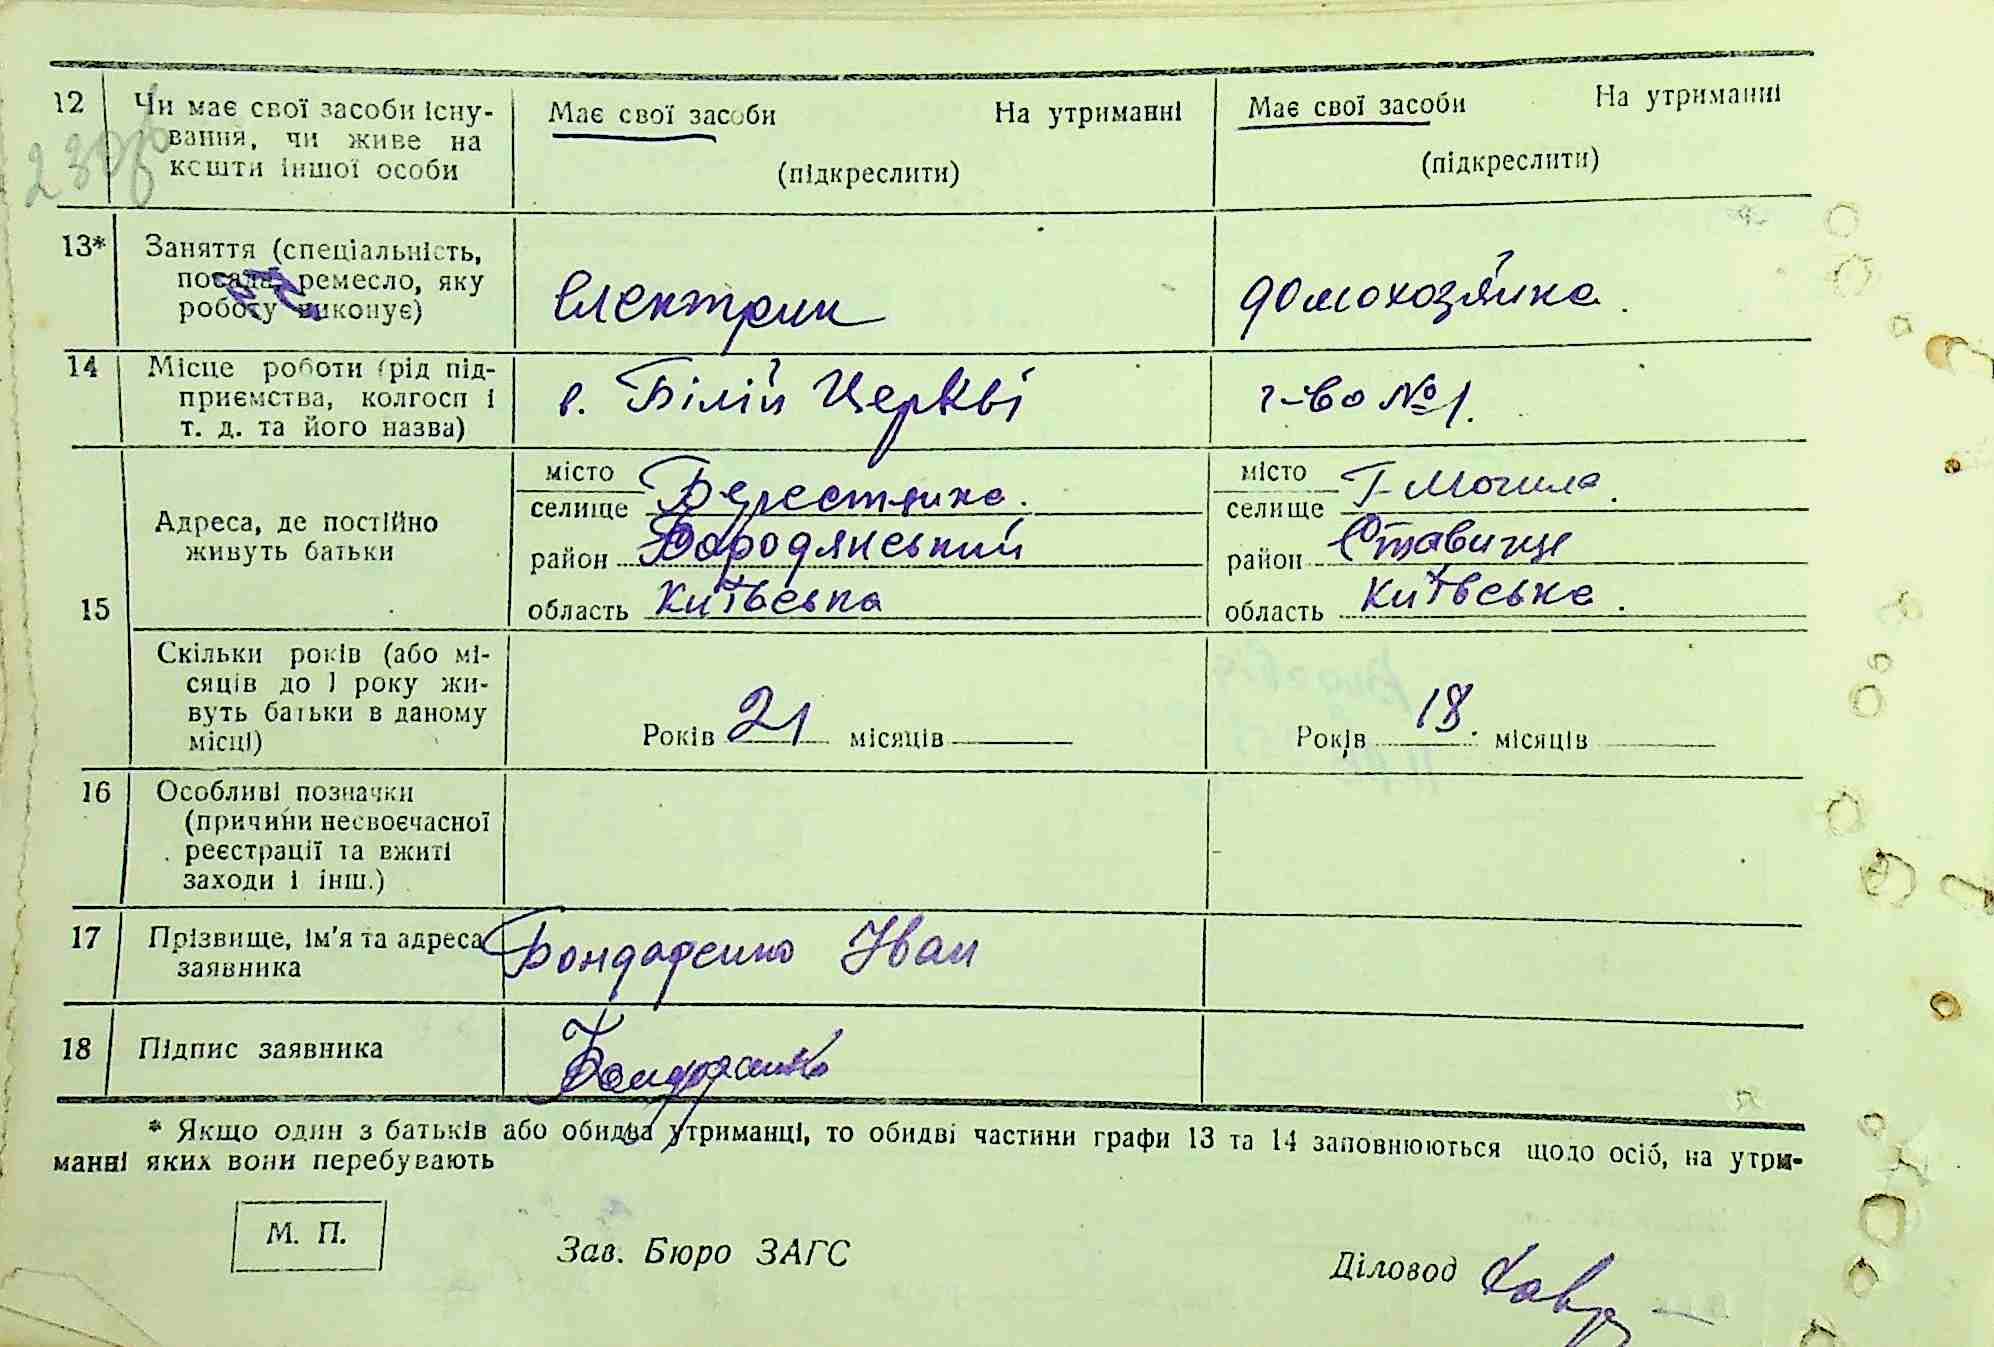 12 Чи має свої засоби існу- Має свої засоби На утриманні Має свої засоби На утриманні
вання, чи живе на
кошти іншої особи (підкреслити) (підкреслити)
13* Заняття (спеціальність,
посада, ремесло, яку електрик домохозяйка.
роботу виконує)
14 Місце роботи (рід під-
приємства, колгосп і в. Білій Церкві г-во №1.
т. д. та його назва)
15 Адреса, де постійно
живуть батьки
місто
селище Берестянка.
район Бородянський
область Київська
місто
селище Г-Могила.
район Ставище
область Київська.
Скільки років (або мі-
сяців до 1 року жи-
вуть батьки в даному
місці)
Років 21 місяців Років 18. місяців
16 Особливі позначки
(причини несвоєчасної
реєстрації та вжиті
заходи і інш.)
17 Прізвище, ім'я та адреса
заявника Бондаренко Іван
18 Підпис заявника Бондаренко
* Якщо один з батьків або обидва утриманці, то обидві частини графи 13 та 14 заповнюються щодо осіб, на утри-
манні яких вони перебувають
М. П.
Зав. Бюро ЗАГС
Діловод